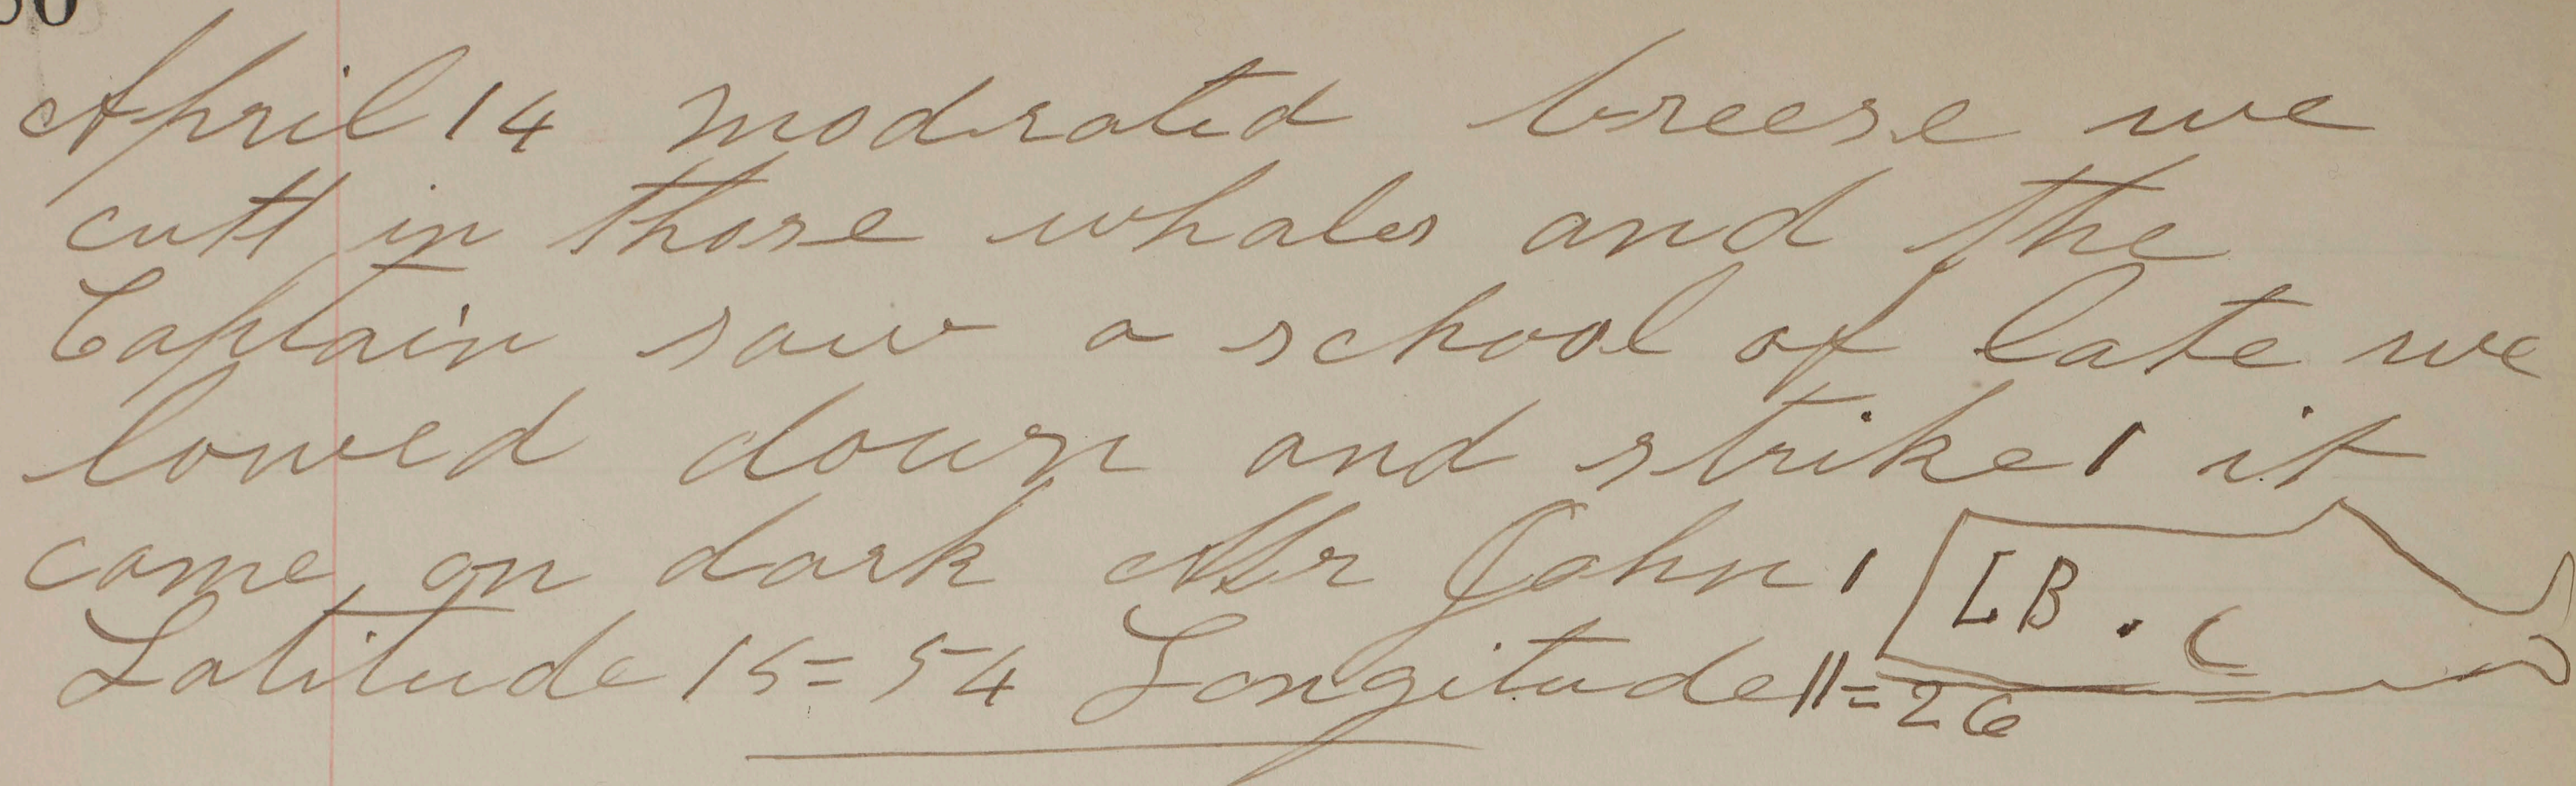 April 14 moderated breese we
cutt in those whales and the
Captain saw a school of late we
lowed down and strike 1 it
come on dark Mr John 1
LB.
Latitude 15=54 Longitude 11=26